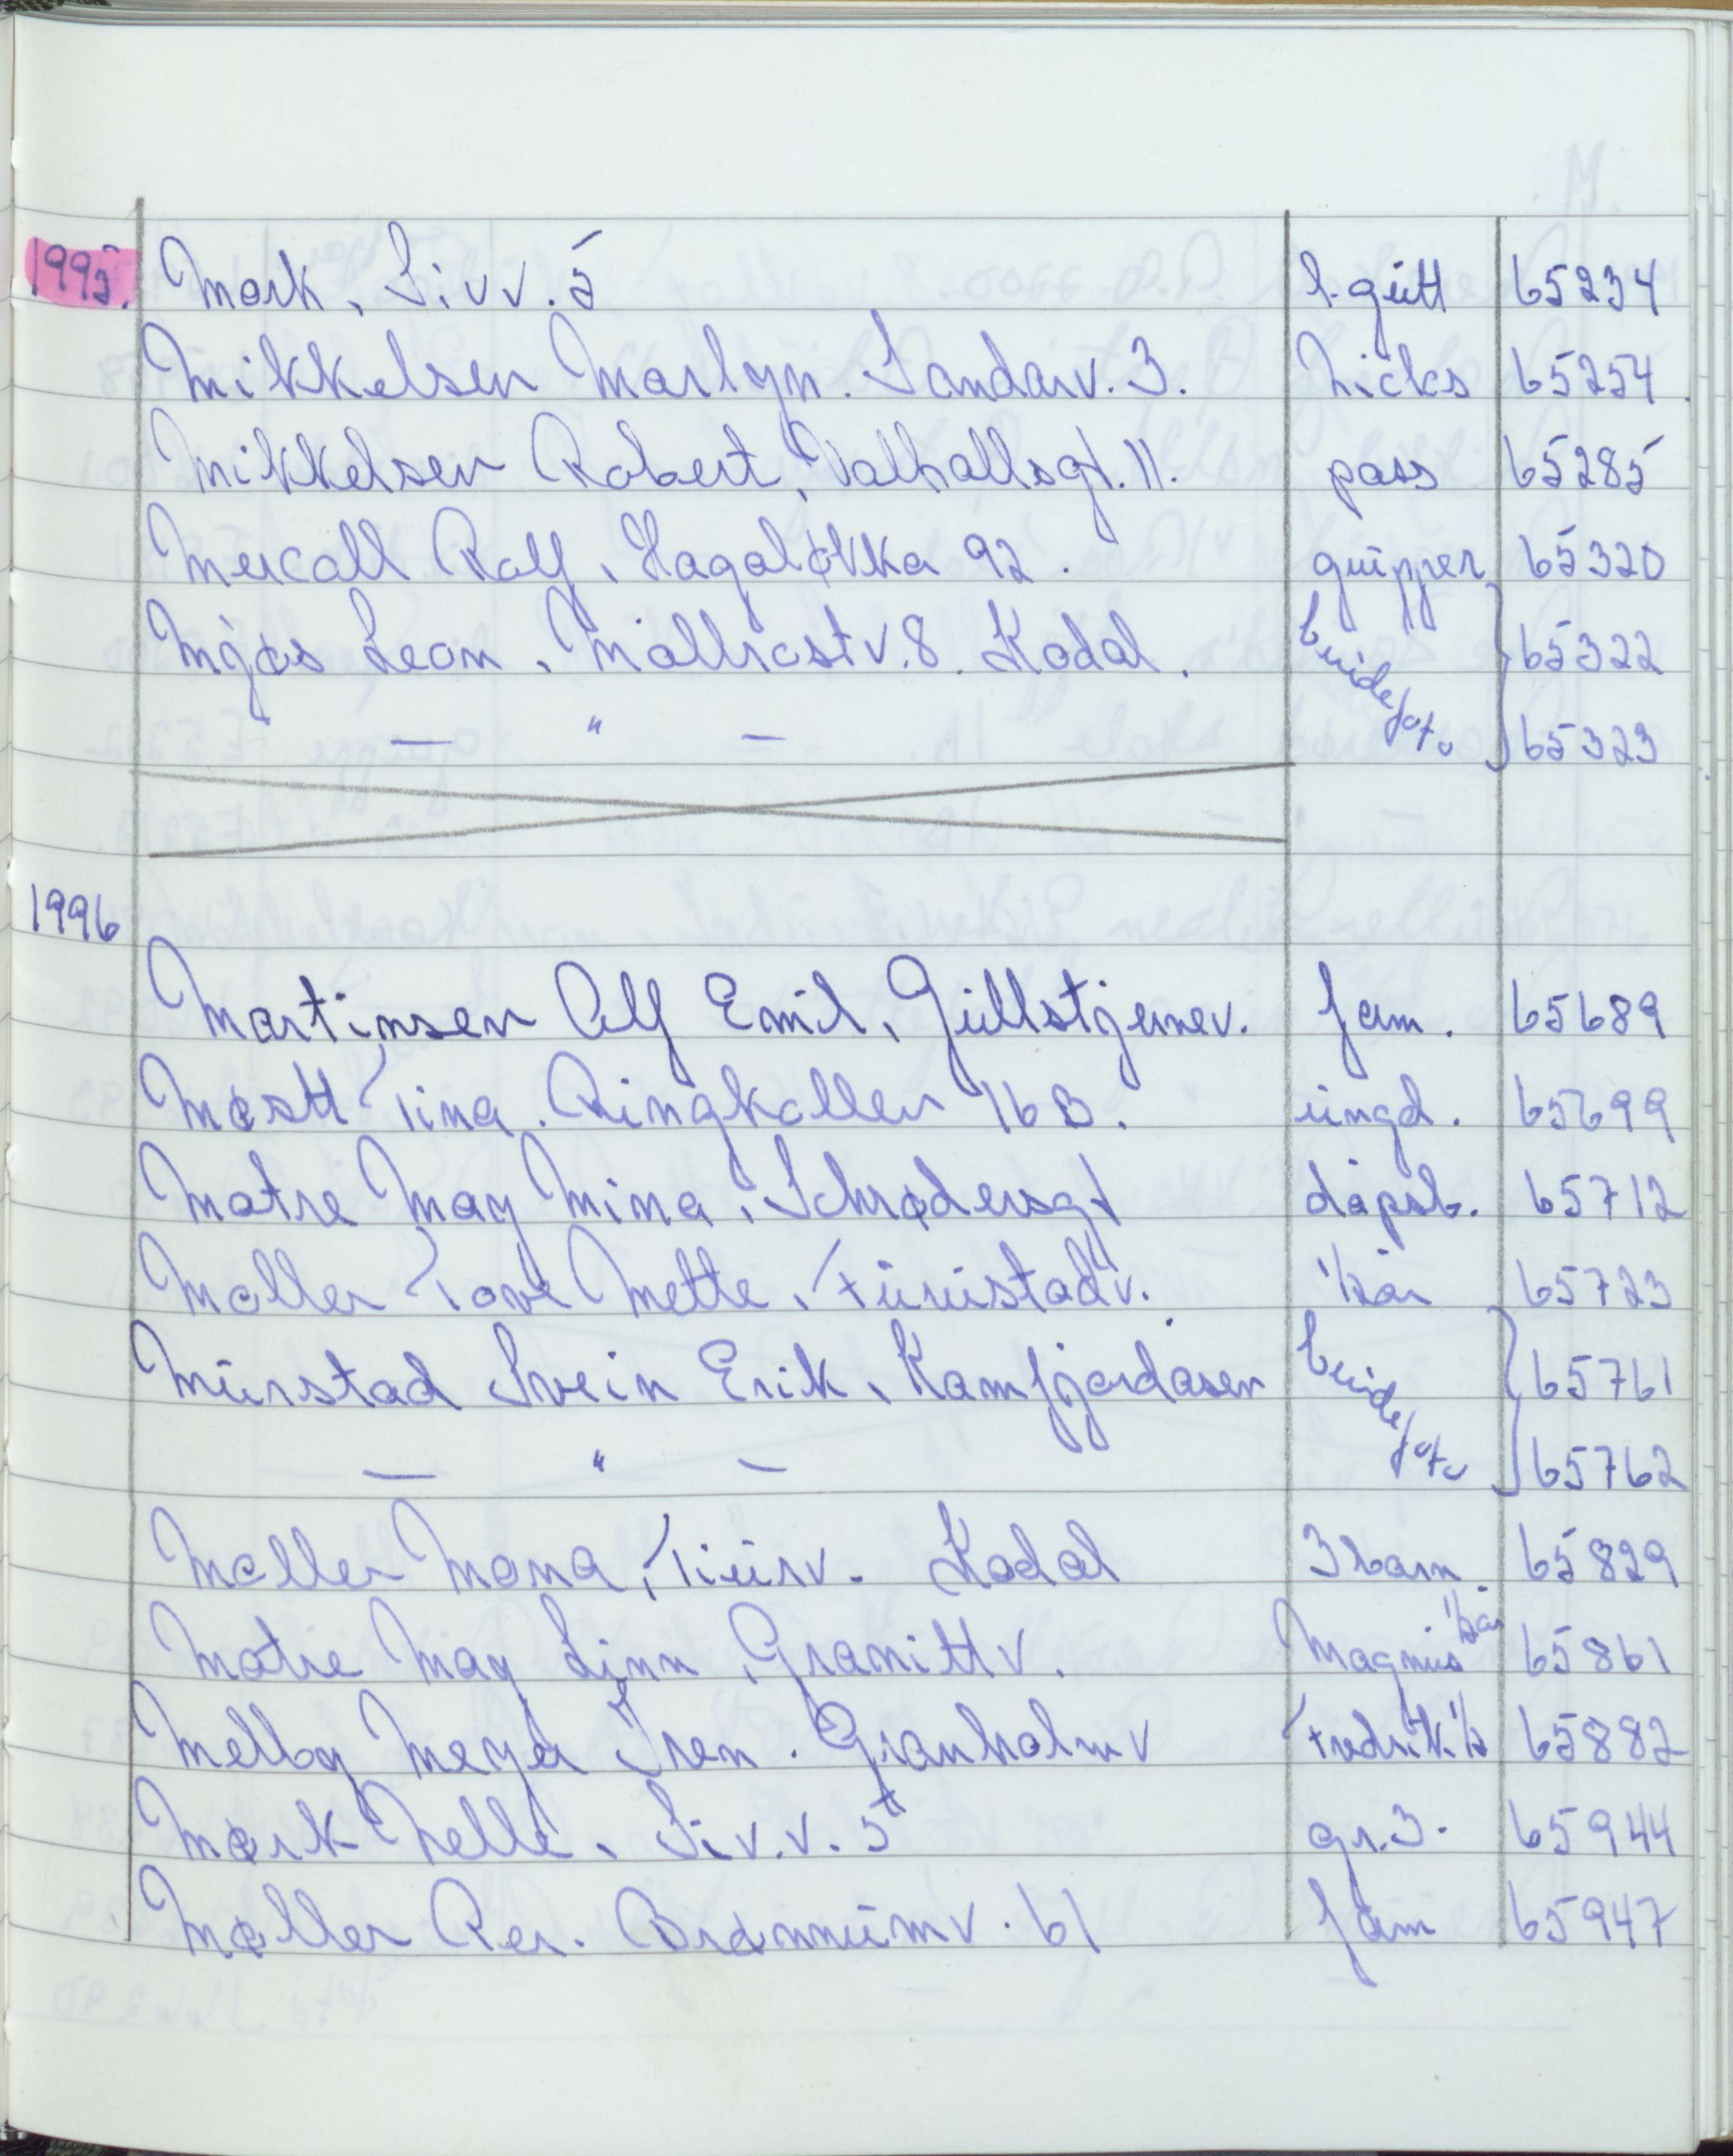 1995. Mørk, Siv v. 5 1-gutt 65234
Mikkelsen Marlyn. Sandarv. 3. Hicks 65254.
Mikkelsen Robert, Valhallsgt. 11. pass 65285
Mercoll Rolf, Hagaløkka 92. grupper 65320
Mjøs Leon, Møllrostv. 8. Kodal. beide foto 65322
— " — 65323
1996
Martinsen Alf Emil, Gullstjernev. fam. 65689
Møstl Tina. Ringkollen 16 B. ungd. 65699
Matre May Mina, Schrødersgt dåpsb. 65712
Møller Tove Mette, Furustadv. 1/2 år 65723
Murstad Svein Erik, Kamfjordåsen beide foto 65761
— " — 65762
Møller Mona, Tiurv. Kodal 3 barn. 65829
Matre May Linn, Granittv. Magnus 1/2 år 65861
Melby Meyer Iren. Granholmv Fredrik 1/2 65882
Mørk Helle, Siv. v. 5 gr. 3. 65944
Møller Per. Brønnumv. 61 fam 65947